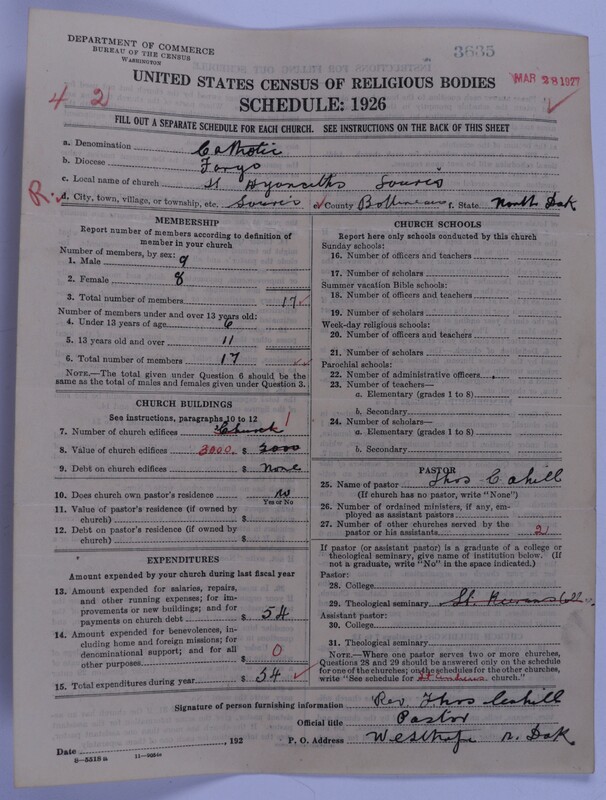 DEPARTMENT OF COMMERCE
BUREAU OF THE CENSUS
WASHINGTON
3635
UNITED STATES CENSUS OF RELIGIOUS BODIES
MAR 28 1927
SCHEDULE: 1926
4 2
FILL OUT A SEPARATE SCHEDULE FOR EACH CHURCH. SEE INSTRUCTIONS ON THE BACK OF THIS SHEET
a. Denomination Catholic
b. Diocese Fargo
c. Local name of church St Souris
R.
d. City, town, village, or township, etc. Souris e. County Bottineau f. State North Dak
MEMBERSHIP
Report number of members according to definition of
member in your church
Number of members, by sex:
1. Male 9
2. Female 8
3. Total number of members 17
Number of members under and over 13 years old:
4. Under 13 years of age 6
5. 13 years old and over 11
6. Total number of members 17
NOTE.—The total given under Question 6 should be the
same as the total of males and females given under Question 3.
CHURCH BUILDINGS
See instructions, paragraphs 10 to 12
7. Number of church edifices Church 1
8. Value of church edifices 3000 $ 3000
9. Debt on church edifices $ None
10. Does church own pastor's residence no
Yes or No
11. Value of pastor's residence (if owned by
church) $
12. Debt on pastor's residence (if owned by
church) $
EXPENDITURES
Amount expended by your church during last fiscal year
13. Amount expended for salaries, repairs,
and other running expenses; for im-
provements or new buildings; and for
payments on church debt $ 54
14. Amount expended for benevolences, in-
cluding home and foreign missions; for
denominational support; and for all
other purposes $ 0
15. Total expenditures during year $ 54
CHURCH SCHOOLS
Report here only schools conducted by this church
Sunday schools:
16. Number of officers and teachers
17. Number of scholars
Summer vacation Bible schools:
18. Number of officers and teachers
19. Number of scholars
Week-day religious schools:
20. Number of officers and teachers
21. Number of scholars
Parochial schools:
22. Number of administrative officers
23. Number of teachers—
a. Elementary (grades 1 to 8)
b. Secondary
24. Number of scholars—
a. Elementary (grades 1 to 8)
b. Secondary
PASTOR
25. Name of pastor Thos Cahill
(If church has no pastor, write "None")
26. Number of ordained ministers, if any, em-
ployed as assistant pastors
27. Number of other churches served by the
pastor or his assistants 2
If pastor (or assistant pastor) is a graduate of a college or
theological seminary, give name of institution below. (If
not a graduate, write "No" in the space indicated.)
Pastor:
28. College
29. Theological seminary St.
Assistant pastor:
30. College
31. Theological seminary
NOTE.—Where one pastor serves two or more churches,
Questions 28 and 29 should be answered only on the schedule
for one of the churches; on the schedules for the other churches,
write "See schedule for St church."
Signature of person furnishing information Rev. Thos Cahill
Official title Pastor
Date , 192 P. O. Address Westhope n. Dak
8—5518 a 11—9034a